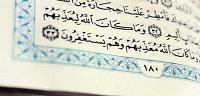 فَأَمْطِرْ عَلَيْنَا حِجَارَةً مِّنَ
وَمَا كَانَ ٱللَّهُ لِيُعَذِّبَهُمْ
وَمَا كَانَ ٱللَّهُ مُعَذِّبَهُمْ وَهُمْ يَسْتَغْفِرُونَ ٣٣
١٨٠